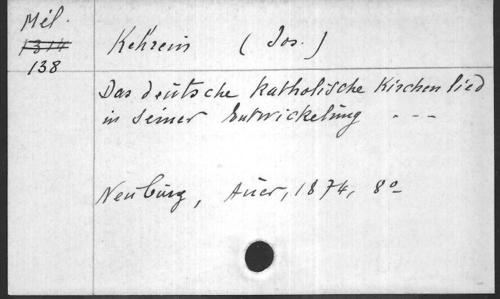 Mél.
1314
138
Kehrein (Jos.)
Das deutsche katholische Kirchenlied
in seiner Entwickelung - - -
Neuburg, Auer, 1874, 8º